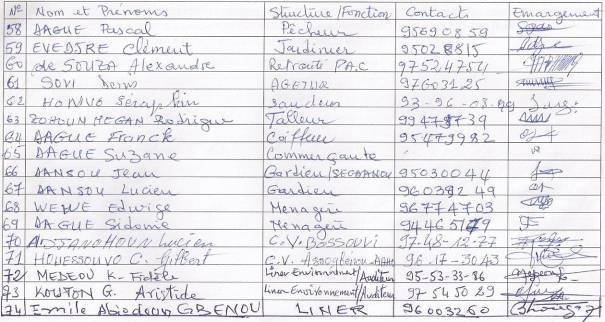 N° Nom et Prénoms Structure/Fonction Contacts Emargement
58 DAGUE Pascal Pêcheur 95690859
59 EVEDJRE Clément Jardinier 95028815
60 de SOUZA Alexandre Retraité P.A.C 97524754
61 SOVI Denis AGETUR 97603125
62 HONVO Séraphin Soudeur 93-96-03-99
63 ZOHOUN MEGAN Rodrigue Tailleur 99479739
64 DAGUE Franck Coiffeur 95479982
65 DAGUE SUZANE Commerçante
66 DANSOU Jean Gardien/SEGBANOU 95030044
67 DANSOU Lucien Gardien 96038249
68 WEWE Edwige Menagère 96774703
69 DAGUE Sidonie Menagère 94465179
70 ADJANOHOUN Lucien C.V. BOSSOUVI 97-48-12-77
71 HOUESSOUVO C. Gilbert C.V. 96-17-30-43
72 MEDEOU K. Fidèle Liner Environnment/Auditeur 95-53-33-86
73 KOUTON G. Aristide Liner Environnement/Auditeur 97545029
74 Emile Abiodoun GBENOU LINER 96003260